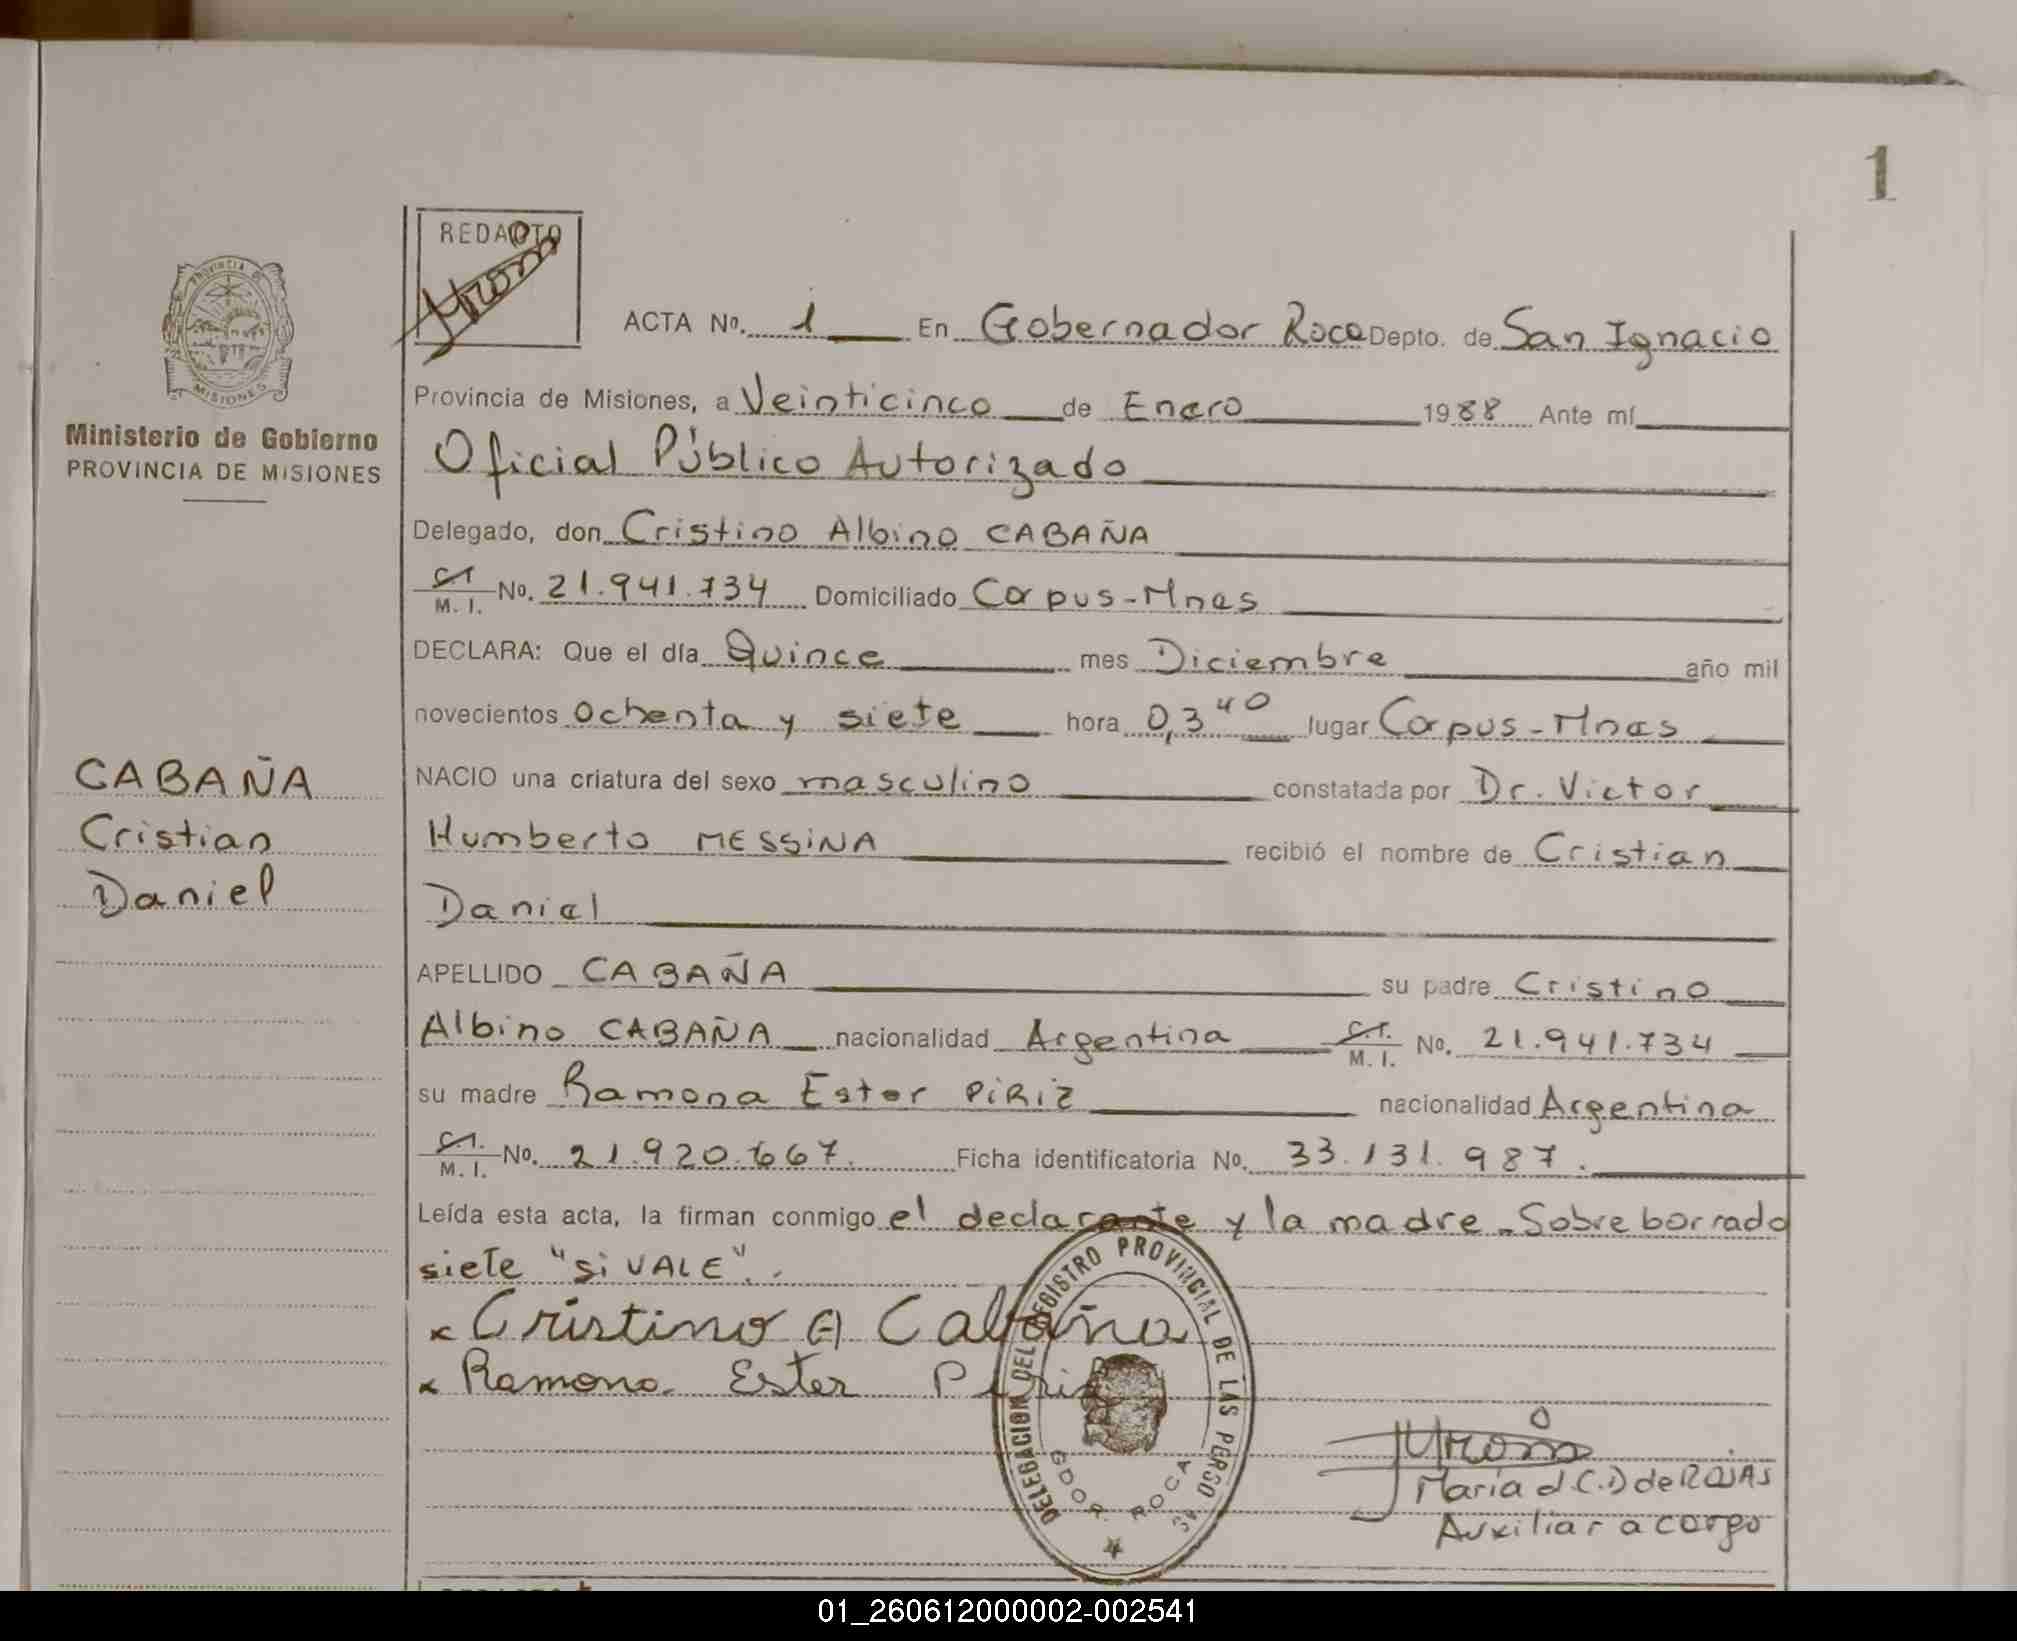 1
REDACTO
PROVINCIA DE
MISIONES
Ministerio de Gobierno
PROVINCIA DE MISIONES
CABAÑA
Cristian
Daniel
ACTA No. 1 En Gobernador Roca Depto. de San Ignacio
Provincia de Misiones, a Veinticinco de Enero 1988 Ante mí
Oficial Público Autorizado
Delegado, don Cristino Albino CABAÑA
C.I. M. I. No. 21.941.734 Domiciliado Corpus-Mnes
DECLARA: Que el día Quince mes Diciembre año mil
novecientos ochenta y siete hora 0,3 40 lugar Corpus-Mnes
NACIO una criatura del sexo masculino constatada por Dr. Victor
Humberto MESSiNA recibió el nombre de Cristian
Daniel
APELLIDO CABAÑA su padre Cristino
Albino CABAÑA nacionalidad Argentina C.I. M. I. No. 21.941.734
su madre Ramona Ester PiRiZ nacionalidad Argentina
C.I. M. I. No. 21.920.667. Ficha identificatoria No. 33.131.987.
Leída esta acta, la firman conmigo el declarante y la madre - Sobre borrado
siete "si VALE".-
x Cristino A Cabaña
x Ramona Ester Piriz
DELEGACION DEL REGISTRO PROVINCIAL DE LAS PERSONAS
GDOR. ROCA
María d C.D de ROJAS
Auxiliar a cargo
01_260612000002-002541